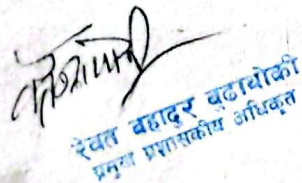 रेवत बहादुर वुढाथोकी
प्रमुख प्रशासकीय अधिकृत